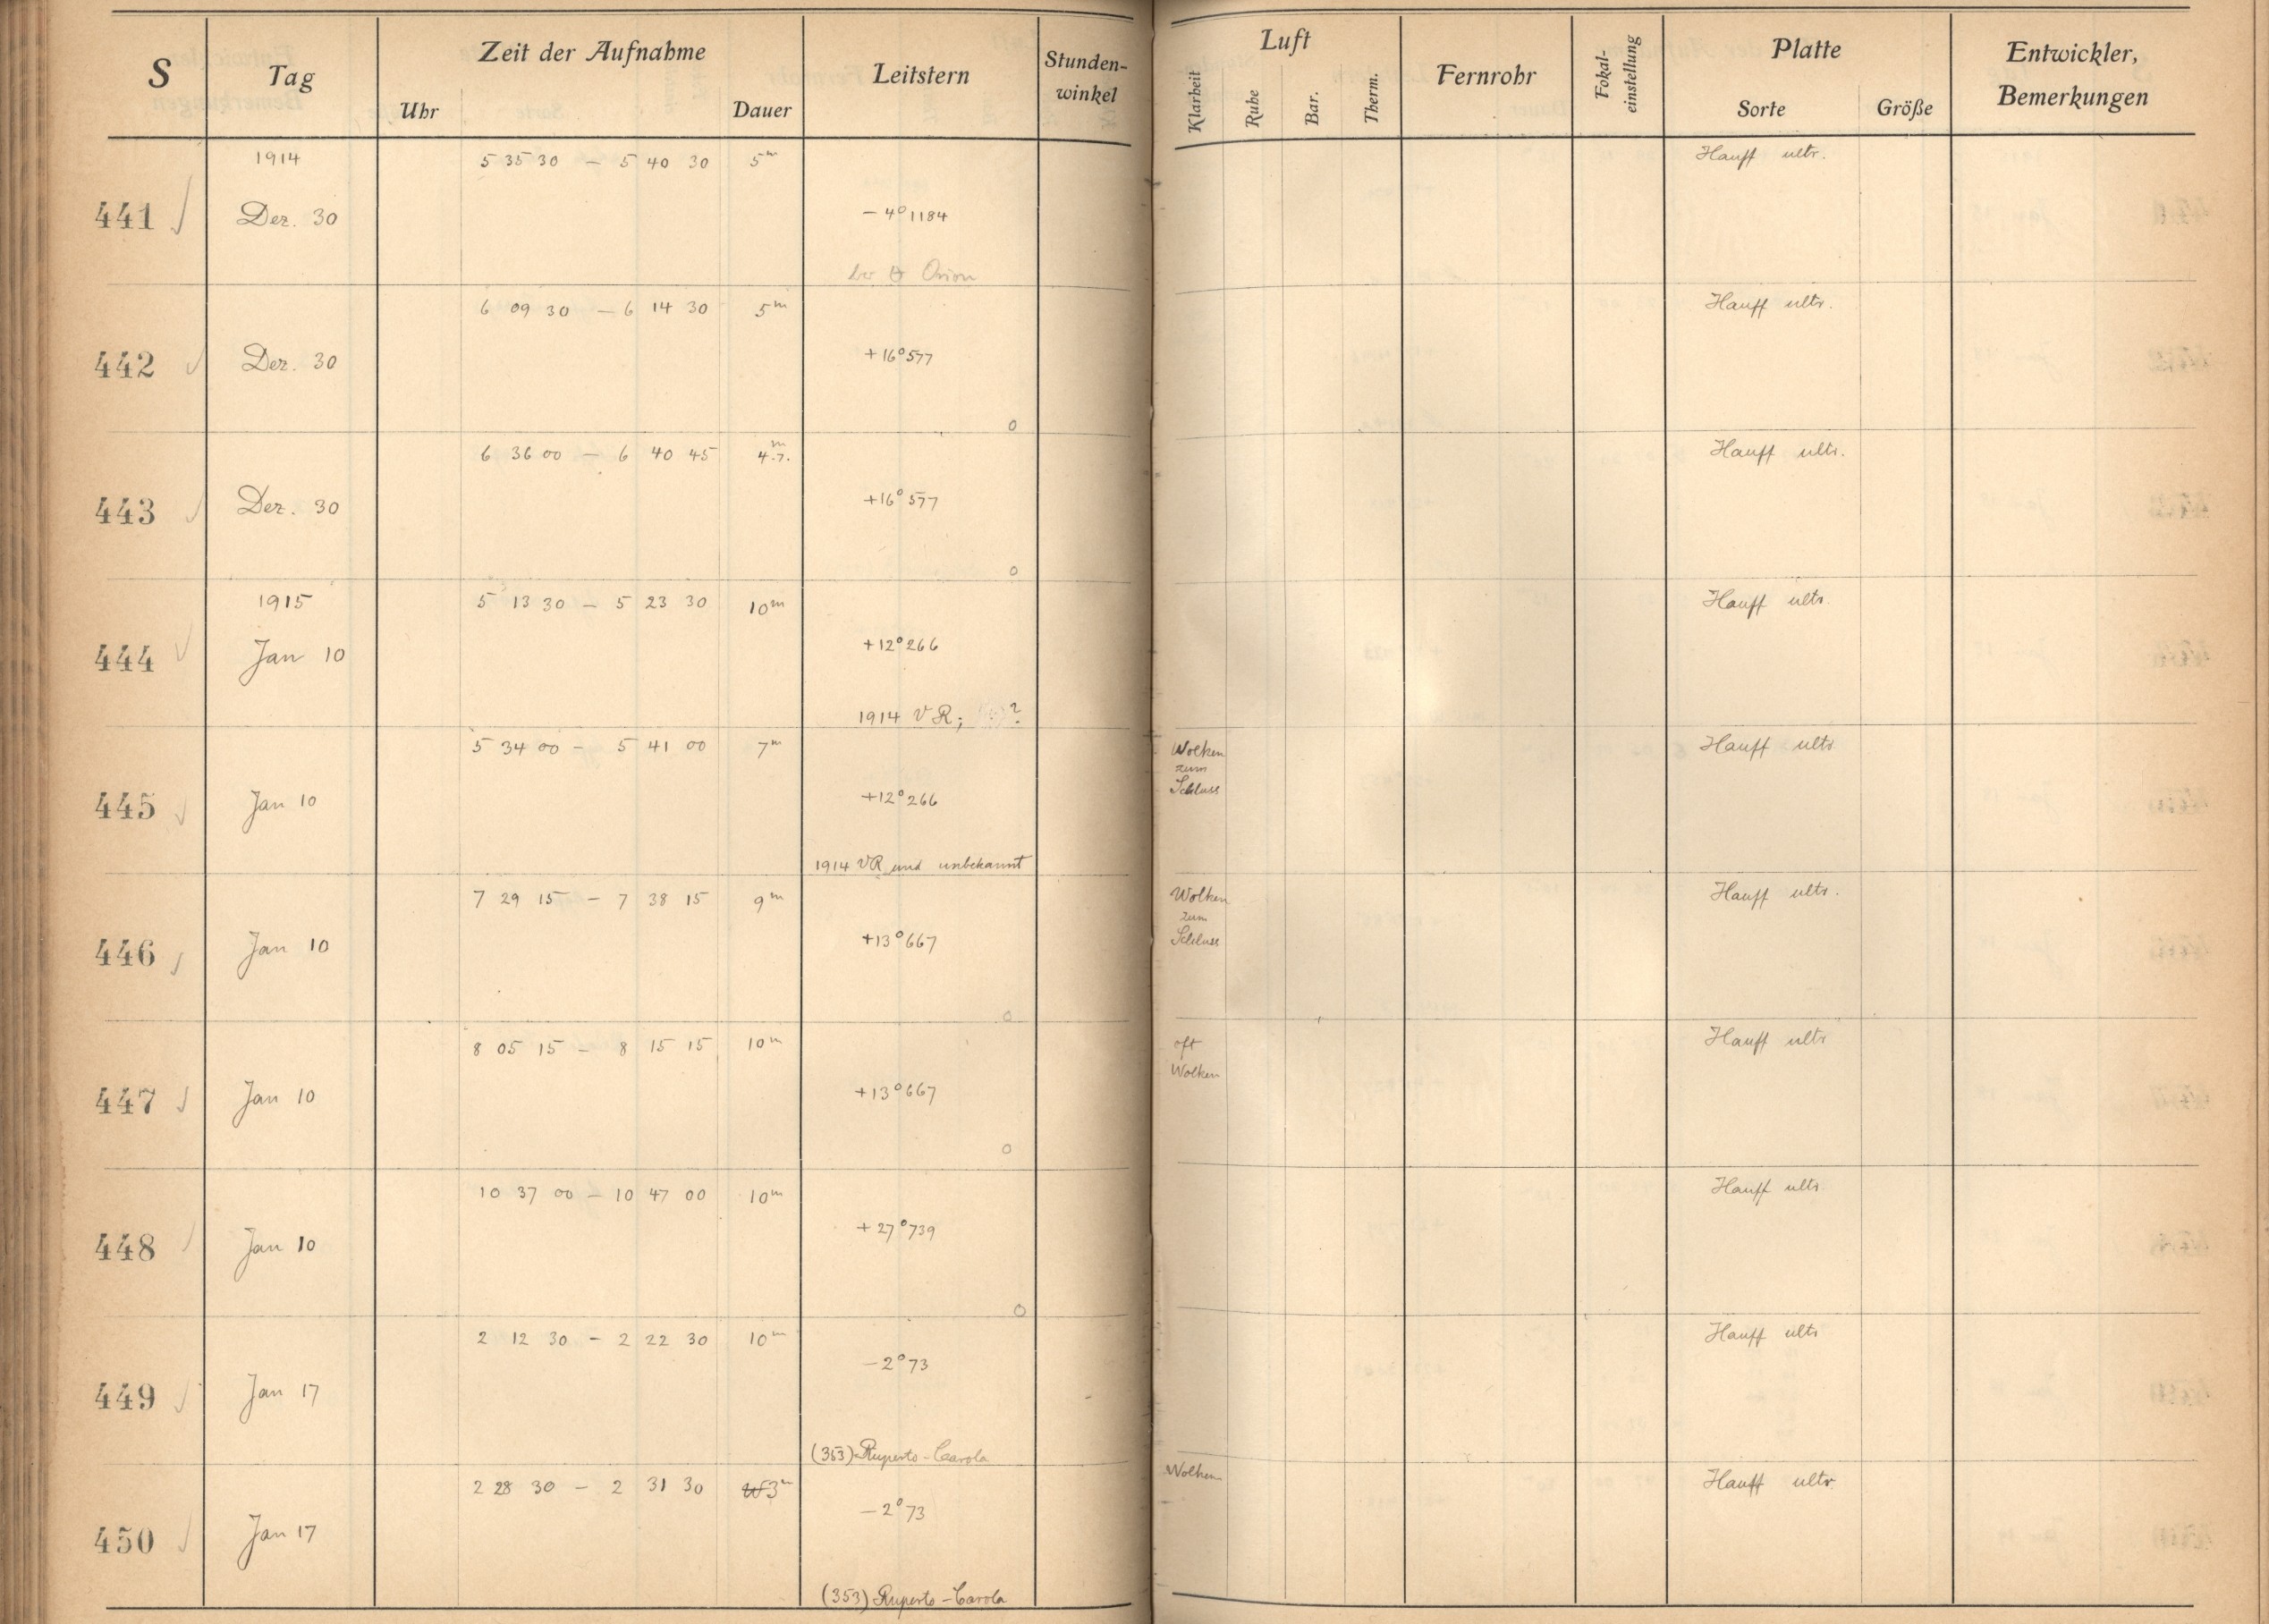 S Tag Zeit der Aufnahme Leitstern Stunden-winkel Luft Fernrohr Fokal-einstellung Platte Entwickler, Bemerkungen
Uhr Dauer Klarheit Ruhe Bar. Therm. Sorte Größe
1914 5 35 30 – 5 40 30 5m Hauff ultr.
441 Dez. 30 – 4° 1184
bei θ Orion
6 09 30 – 6 14 30 5m Hauff ultr.
442 Dez. 30 + 16° 577
0
6 36 00 – 6 40 45 4.7m Hauff ultr.
443 Dez. 30 + 16° 577
0
1915 5 13 30 – 5 23 30 10m Hauff ultr.
444 Jan 10 + 12° 266
1914 VR; ?
5 34 00 – 5 41 00 7m Wolken zum Schluss Hauff ultr
445 Jan 10 + 12° 266
1914 VR und unbekannt
7 29 15 – 7 38 15 9m Wolken zum Schluss Hauff ultr.
446 Jan 10 + 13° 667
0
8 05 15 – 8 15 15 10m oft Wolken Hauff ultr
447 Jan 10 + 13° 667
0
10 37 00 – 10 47 00 10m Hauff ultr.
448 Jan 10 + 27° 739
0
2 12 30 – 2 22 30 10m Hauff ultr
449 Jan 17 – 2° 73
(353) Ruperto-Carola
2 28 30 – 2 31 30 3m Wolken Hauff ultr.
450 Jan 17 – 2° 73
(353) Ruperto-Carola